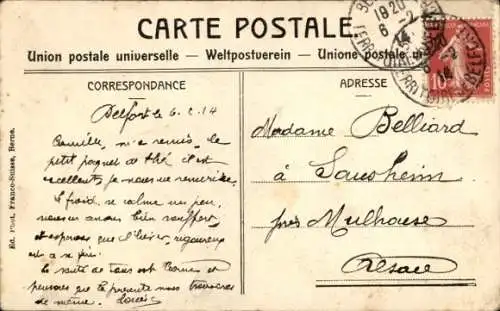 CARTE POSTALE.
Union postale universelle — Weltpostverein — Unione postale
CORRESPONDANCE
ADRESSE
Belfort le 6.2.14
Camille, m'a remis, le
petit paquet de thé il est
excellent je vous remercie.
Le froid, se calme un peu,
nous en avons bien souffert
et espérons que l'hiver, rigoureux
est à sa fin.
La santé de tous est bonne et
pensons que la présente vous trouvera
de même. Louis
Madame Belliard
à Sausheim
près Mulhouse
Alsace
Ed. Phot. Franco-Suisse, Berne.
19 20
6 -2
14
10